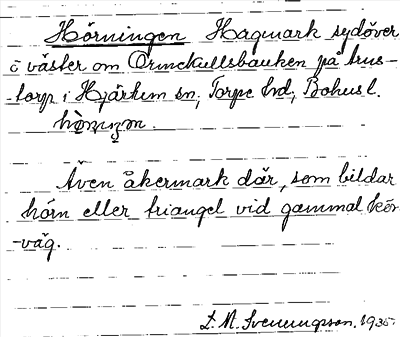 Hörningen Hagmark sydöver
o väster om Ormekullsbacken på Arus-
-torp i Hjärtum sn, Torpe hd, Bohusl.
Även åkermark där, som bildar
hörn eller triangel vid gammal kör
-väg.
L. M. Svenungsson. 1935.